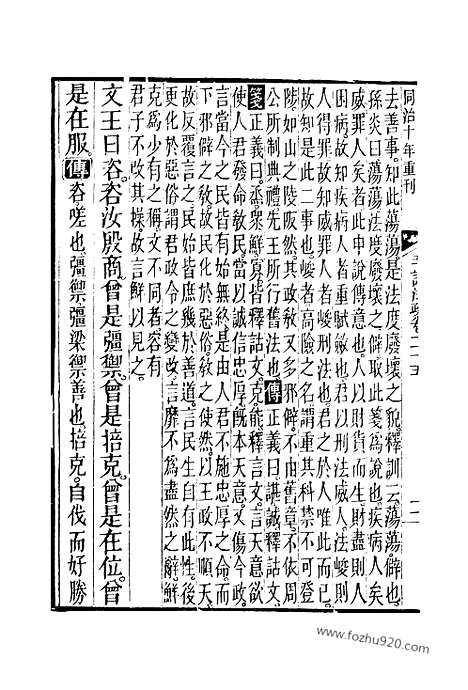 同治十年重刊 毛詩注疏卷二十五
去善事。知此蕩蕩是法度廢壞之貌。釋訓云。蕩蕩。僻也。
孫炎曰。蕩蕩法度廢壞之僻。取此箋爲說也。疾病人矣
威罪人矣者。此申說傳意也。人以財貨而生。財盡則人
困病。故知疾病人者。重賦斂也。君以刑法威人。法峻則
人得罪。故知威罪人者。峻刑法也。君之於人。唯此而已。
故知是此二事也。峻者高險之名。謂重其科禁。不可登
陵。如山之陵阪然。其政敎又多邪僻。不由舊章。不依周
公所制典禮。先王所行舊法也。傳正義曰。諶誠。釋詁文。
箋正義曰。烝衆。鮮寡。皆釋詁文。克能。釋言文。言天意欲
使人君發命敎民。當以誠信忠厚。旣本天意。又傷今政。
言當今之民。皆有始無終。是由人君不施忠厚之命。而
下邪僻之敎。故民化於惡俗。敎之使然。以王政不順。
故反覆言之。民始皆庶幾於善道。言民生自有此性。後
更化於惡俗。謂君政令之變改。言靡不爲盡然之辭。鮮
克爲少有之稱。文不同者。容有
君子不改其操。故言鮮以見之。
文王曰咨。咨汝殷商。曾是彊禦。曾是掊克。曾是在位。曾
是在服。傳咨。嗟也。彊禦。彊梁禦善也。掊克。自伐而好勝
www.fozhu920.com